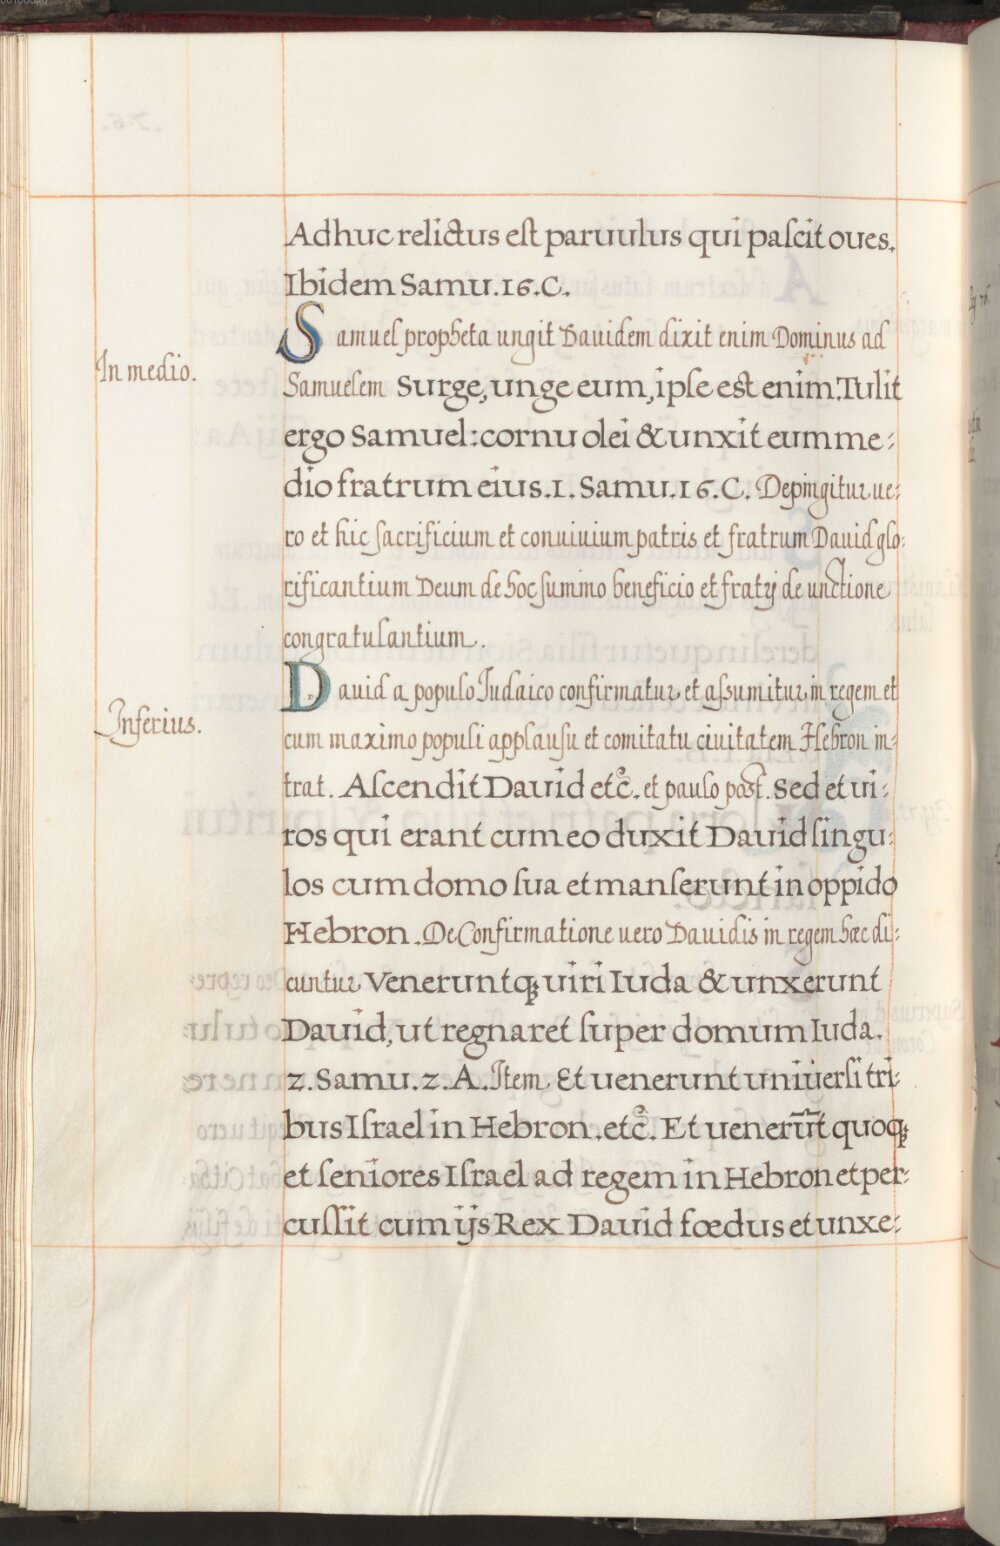 Adhuc relictus est paruulus qui pascit oues.
Ibidem Samu.16.C.
In medio.
Samuel propheta ungit Dauidem dixit enim Dominus ad
Samuelem Surge, unge eum, ipse est enim. Tulit
ergo Samuel: cornu olei & unxit eum me:
dio fratrum eius.1. Samu.16.C. Depingitur ue:
ro et hic sacrificium et conuiuium patris et fratrum Dauid glo:
rificantium Deum de hoc summo beneficio et fratꝝ de unctione
congratulantium.
Inferius.
Dauid a populo Judaico confirmatur et assumitur in regem et
cum maximo populi applausu et comitatu ciuitatem Hebron in:
trat. Ascendit Dauid etc̊. et paulo post. Sed et ui:
ros qui erant cum eo duxit Dauid singu:
los cum domo sua et manserunt in oppido
Hebron. De Confirmatione uero Dauidis in regem hæc di:
cuntur Veneruntqꝫ uiri Iuda & unxerunt
Dauid, ut regnaret super domum Iuda.
2. Samu.2. A. Item. Et uenerunt uniuersi tri:
bus Israel in Hebron. etc̊. Et uenerūt quoqꝫ
et seniores Israel ad regem in Hebron et per:
cussit cum ijs Rex Dauid fœdus et unxe: